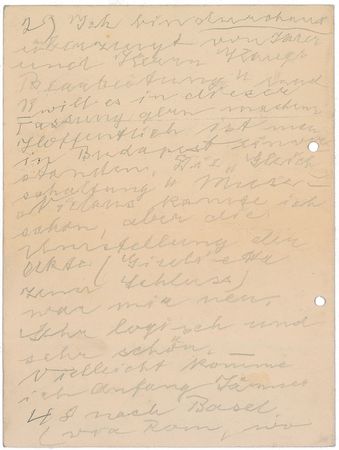 2.) Ich bin durchaus
überzeugt von Ihrer
und Herrn Krugs
Bearbeitung" und
will es in dieser
Fassung gern machen.
Hoffentlich ist man
in Budapest einver
standen. Die "Gleich
schaltung"
kannte ich
schon, aber die
Umstellung der
Akte
Schluss)
war mir neu.
Sehr logisch und
sehr schön.
Vielleicht komme
ich Anfang Jänner
48 nach Basel.
(via Rom, wo